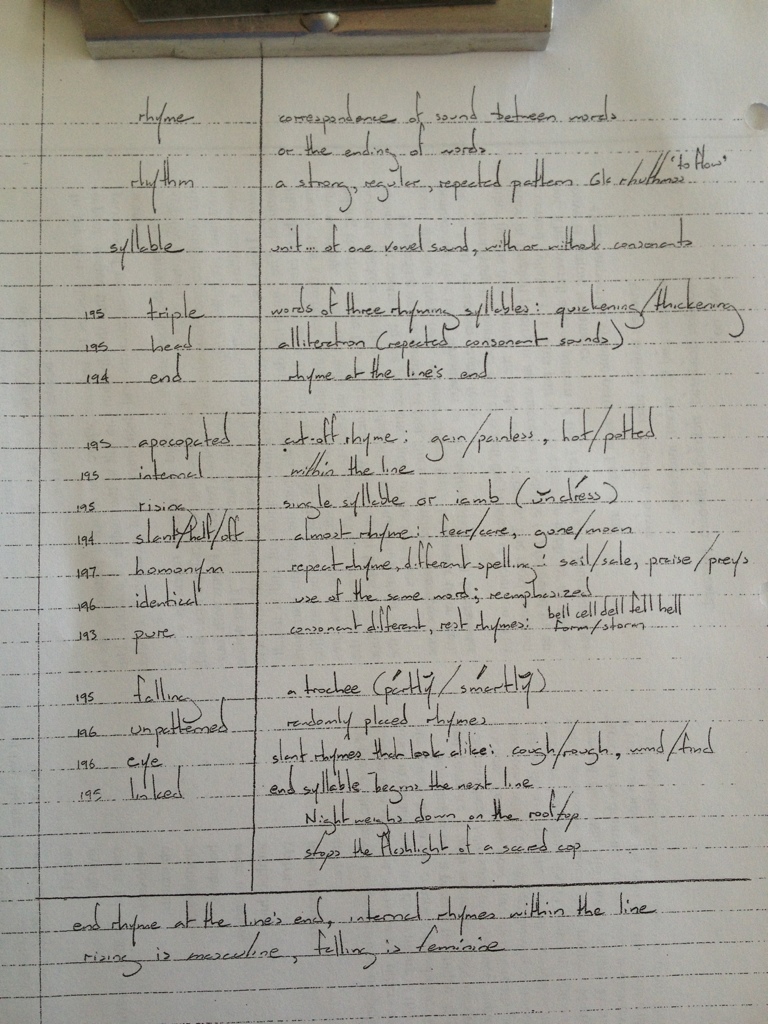 rhyme correspondance of sound between words
or the ending of words
rhythm a strong, regular, repeated pattern Gk rhuthmos 'to flow'
syllable unit... of one vowel sound, with or without consonants
195 triple words of three rhyming syllables: quickening/thickening
195 head alliteration (repeated consonant sounds)
194 end rhyme at the line's end
195 apocopated cut-off rhyme: gain/painless, hot/potted
195 internal within the line
195 rising single syllable or iamb (ŭndréss)
194 slant/half/off almost rhyme: fear/care, gone/moan
197 homonym repeat rhyme, different spelling: sail/sale, praise/preys
196 identical use of the same word; reemphasized
193 pure consonant different, rest rhymes: bell cell dell fell hell
form/storm
195 falling a trochee (pártlў/smártlў)
196 unpatterned randomly placed rhymes
196 eye slant rhymes that look alike: cough/rough, wind/find
195 linked end syllable begins the next line
Night weighs down on the rooftop
stops the flashlight of a scared cop
end rhyme at the line's end, internal rhymes within the line
rising is masculine, falling is feminine